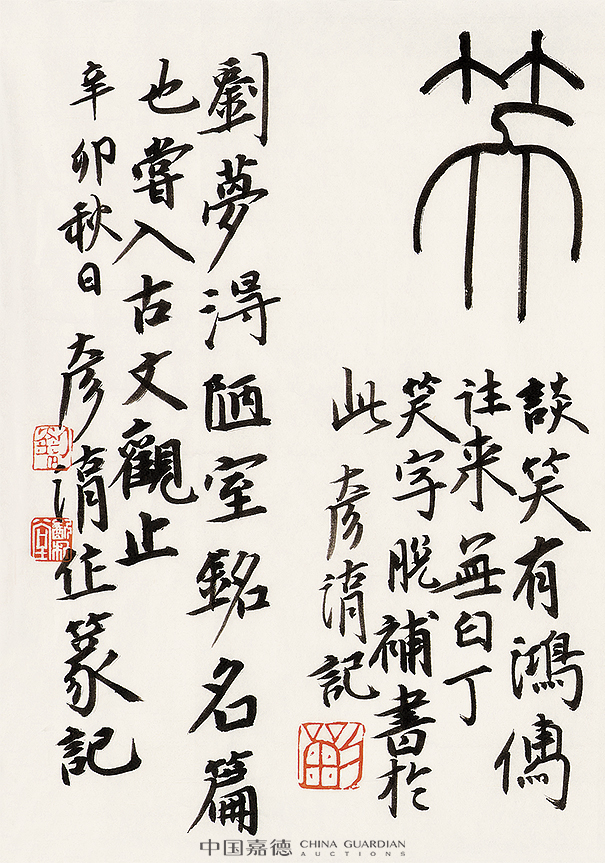 笑
談笑有鴻儒
往来無白丁
笑字脫補書於
此 彦湖記
劉夢得陋室銘名篇
也嘗入古文觀止
辛卯秋日 彦湖作篆記
中国嘉德 CHINA GUARDIAN
AUCTIONS